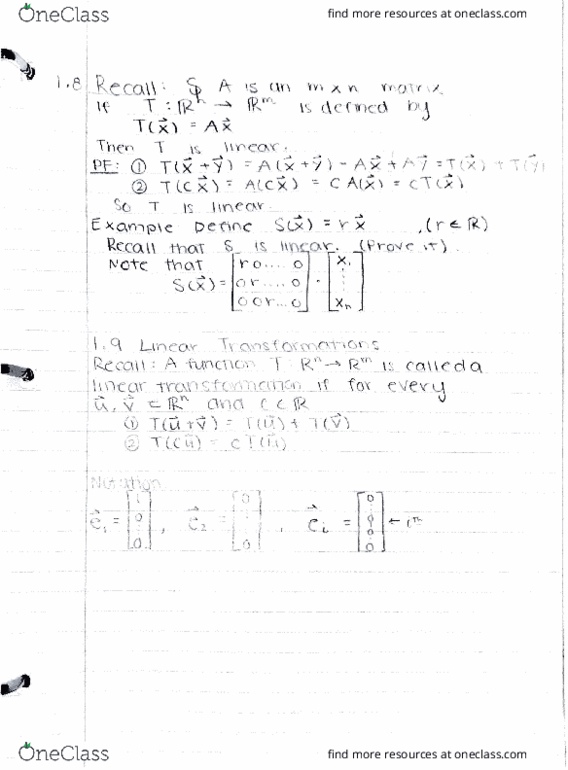 OneClass
find more resources at oneclass.com
1.8 Recall: Sp A is an m x n matrix.
If T: ℝⁿ → ℝᵐ is defined by
T(x⃗) = Ax⃗
Then T is linear.
PF: ① T(x⃗+y⃗) = A(x⃗+y⃗) = Ax⃗ + Ay⃗ = T(x⃗) + T(y⃗)
② T(cx⃗) = A(cx⃗) = cA(x⃗) = cT(x⃗)
So T is linear.
Example Define S(x⃗) = rx⃗ , (r ∈ ℝ)
Recall that S is linear. (Prove it).
Note that
S(x⃗) = [r 0.... 0
0 r .... 0
0 0 r... 0] · [x₁
⋮
xₙ]
1.9 Linear Transformations
Recall: A function T: ℝⁿ → ℝᵐ is called a
linear transformation if for every
u⃗, v⃗ ∈ ℝⁿ and c ∈ ℝ
① T(u⃗+v⃗) = T(u⃗) + T(v⃗)
② T(cu⃗) = cT(u⃗)
Notation
e⃗₁ = [1 0 ⋮ 0] , e⃗₂ = [0 ⋮ 0] , e⃗ᵢ = [0 ⋮ 0 0 0] ← iᵗʰ
OneClass
find more resources at oneclass.com